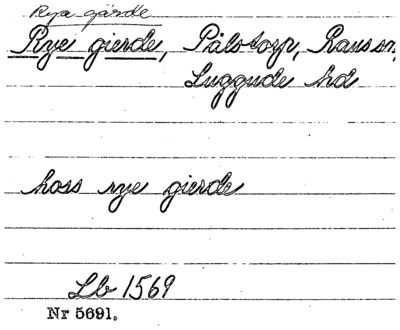 Rya gärde
Rye gierde, Pålstorp, Raus sn,
Luggude hd
hoss rye gierde
Lb 1569
Nr 5691.